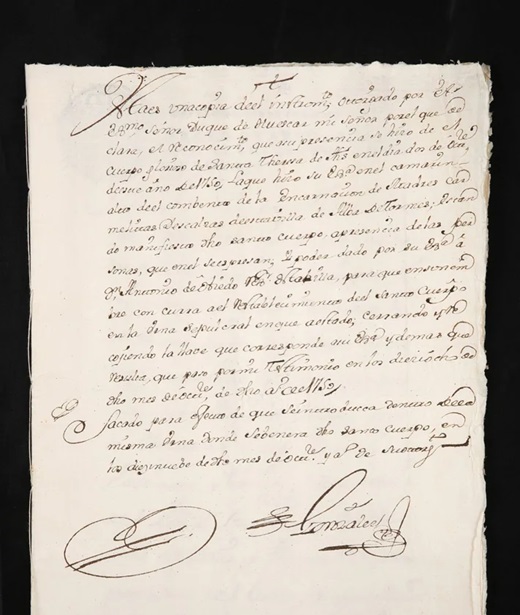 Es una copia del instrum.to otorgado por el
Ex.mo Señor Duque de Huescar mi Señor por el que de
clara, el reconocim.to que a su presencia se hizo de el
Cuerpo glorioso de Santa Theresa de Jhs en el dia dos de
de este año de 1750, la que hizo su Ex.a en el camarin
alto del combento de la Encarnazion de Madres Car
melitas Descalzas de esta villa de Alba de Tormes; estan
do manifiesto dho santo cuerpo, a presencia de las per
sonas, que en el se expresan; y poder dado por su Ex.a á
Dn Antonio de para que en su nom
bre con curra a el del Santo Cuerpo
en la Urna sepulcral en que a estado; cerrando y re
cojiendo la llave que corresponde a su Ex.a y demas que
resulta, que paso por mi testimonio en los diez i ocho de
dho mes de oct.re de dho año de 1750
Sacado para efecto de que se introduzca dentro de la
misma Urna donde se benera dho santo Cuerpo, en
los diez i nuebe de dho mes de oct.re y a.o de
Gonzalez